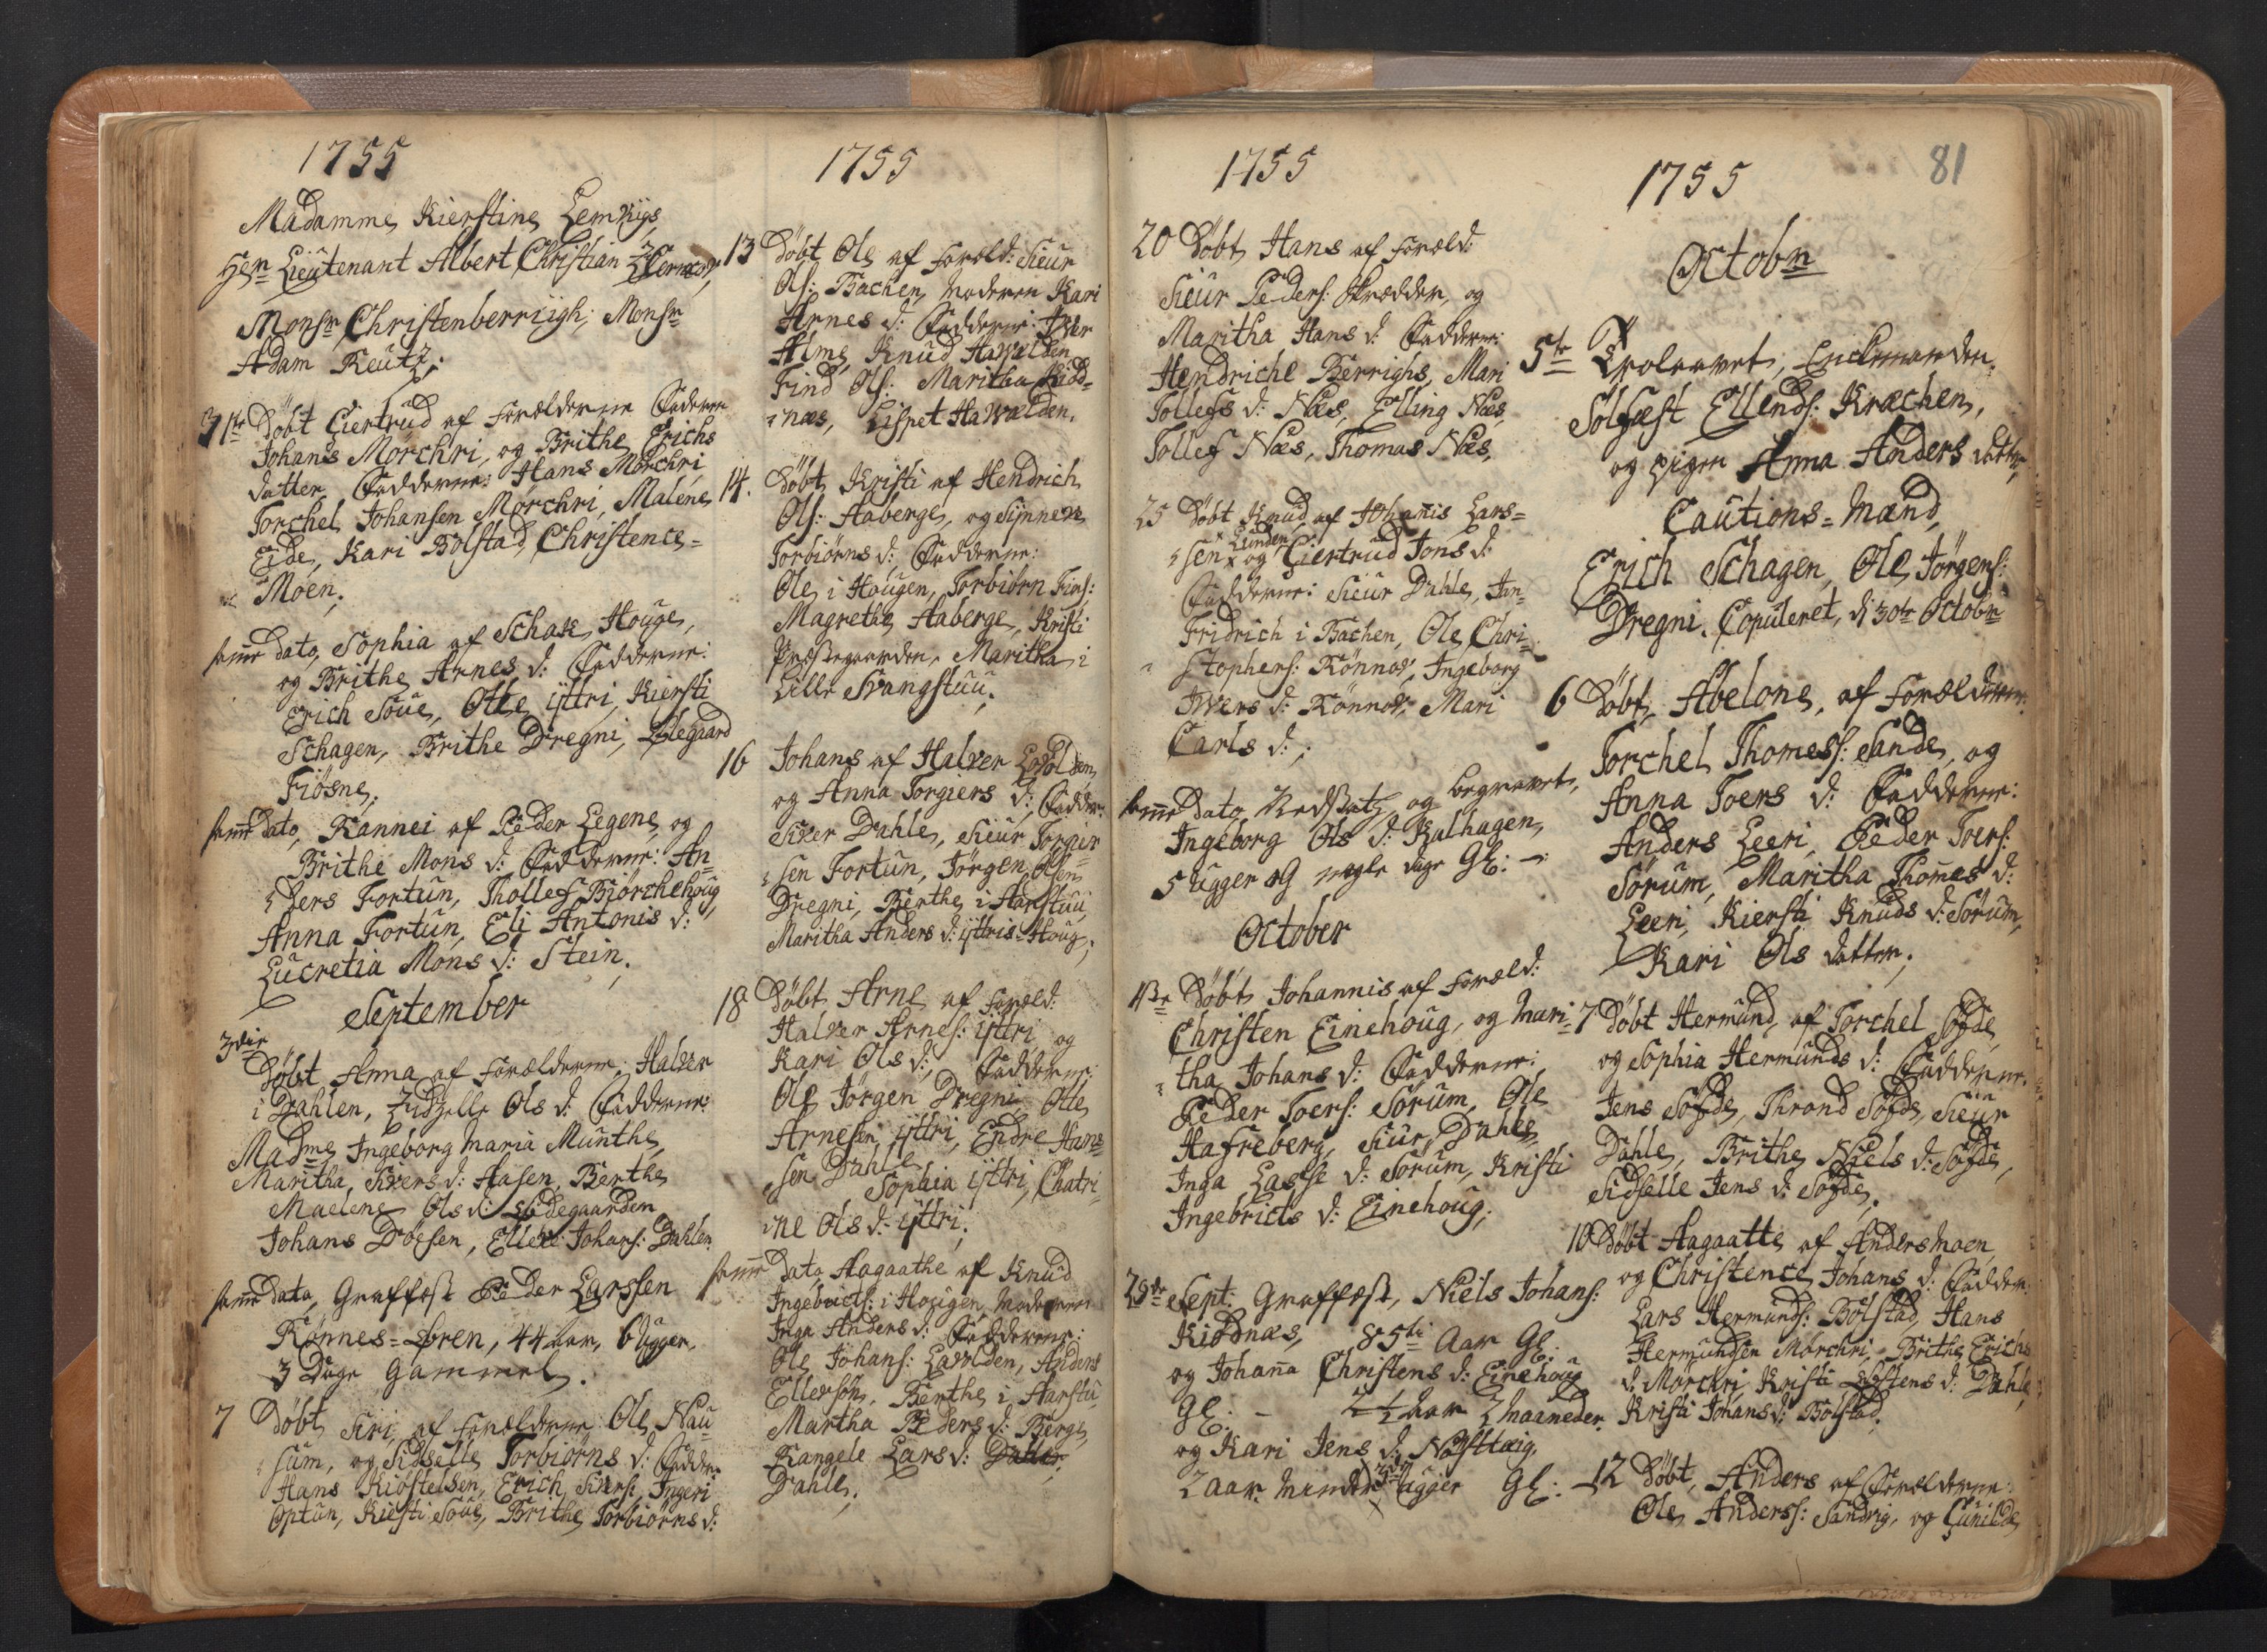 1755
Madamme Kierstine Lemkigs
Herr Lieutenant Albert Christian
Monsr Christenberriigh, Monsr
Adam Reutz;
31te Döbt Giertrud af Forælderne Faderen
Johans Mörchri, og Brithe Erichs
datter Fadderne: Hans Mörchri
Torchel Johansen Mörchri, Malene
Eide, Kari Bolstad, Christence
Moen;
samme dato, Sophia af Schak Houge,
og Brithe Arnes d: Fadderne:
Erich Soue, Otte ijttri, Kiersti
Schagen, Brithe Dregni, Ølegaard
Fiösne;
samme dato, Rannei af Peder Legene, og
Brithe Mons d: Fadderne: An-
ders Fortun, Thollef Biörchehoug
Anna Fortun, Eli Antonis d:
Lucretia Mons d: Stein;
September
3die
Döbt Anna af Forælderne: Halver
i Dahlen, Zidzelle Ols d: Fadderne:
Madme Ingeborg Maria Munthe,
Maritha Sivers d: Hasen, Berthe
Maelene Ols d: Ødegaarden
Johans Döesen, Ellert Johans: Dahlen
samme dato, Graffæst Peder Larssen
Rönnes-Øren, 44 aar, 6 Ugger,
3 Dage Gammel.
7 Döbt Siri af Forælderne Ole Nau
sum, og Sidselle Torbiörns d: Fadder:
Hans Kiöstelsen, Erich Sivers: Ingeri
Optun, Kiersti Soue, Brithe Torbiörns d:
1755
13 Döbt Ole af Foræld: Sieur
Ols: Bachen, Moderen Kari
Arnes d: Fadderne: Iver
Alme, Knud Hawalden
Find Ols: Maritha Kidd-
næs, Lispet Hawalden.
14. Döbt Kristi af Hendrich
Ols: Aaberge, og Synneve
Torbiörns d: Fadderne:
Ole i Hougen, Torbiörn Fins:
Magrethe Aaberge, Kristi
Præstegaarden, Maritha i
Lille Svangstuu;
16 Johans af Halver
og Anna Torgiers d: Fadder:
Siver Dahle, Sieur Torgier
sen Fortun, Jörgen Olsen
Dregni, Berthe i Aarstuu
Maritha Anders d: ijttris-Houg;
18 Döbt Arne af Foræld:
Halver Arnes: ijttri og
Kari Ols d: Fadderne
Ole Jörgen Dregni Otte
Arnesen ijttri, Endre Hans
sen Dahle
Sophia ijttri, Chatri-
ne Ols d: ijttri;
samme dato Aagaathe af Knud
Ingebricts: i Hougen, Moderen
Inga Anders d: Fadderne:
Ole Johans: Lavolden, Anders
Ellersön, Berthe i Aarstu
Martha Peders d: Berge,
Rangele Lars d: Dahle
Dahle;
1755
20 Döbt Hans af Foræld:
Sieur Peders: Skrædder, og
Maritha Hans d: Fadderne:
Hendriche Berrighs, Mari
Tollefs d: Næs, Elling Næs
Tollef Næs, Thomas Næs,
25 Döbt Knud af Johanis Lars-
Lunden
sen x og Giertrud Jons d:
Fadderne: Sieur Dahle, Jan
Fridrich i Bachen, Ole Chri-
stophers: Rönnes, Ingeborg
Ivers d: Rönnes Mari
Carls d:;
samme dato Nedsatz og begravet,
Ingeborg Ols d: Kalhagen,
5 ugger og nogle dage Gl: -
October
1ste Döbt Johannis af Foræld:
Christen Einehoug, og Mari-
tha Johans d: Fadderne:
Peder Toers: Sörum, Ole
Hafreberg, Siur Dahle
Inga Lasse d: Sörum, Kristi
Ingebricts d: Einehoug;
29de Sept: Graffæst, Niels Johans:
Kiödnæs, 85ti Aar Gl:
og Johanna Christens d: Einehoug
Gl: - 2 1/2 Aar 2 Maaneder
og Kari Jens d:
2 aar minder 3de ugger Gl: -
1755
81
Octobr
5te Trolovet, Enckemanden
Sölfæst Ellends: Kræchen,
og Pigen Anna Anders datter
Cautions-Mænd,
Erich Schagen, Ole Jörgens:
Dregni. Copuleret, d: 30te Octobr
6 Döbt, Abelone, af Forælderne:
Torchel Thomess: Sande, og
Anna Toers d: Fadderne:
Anders Leeri, Peder Toers:
Sörum, Maritha Thomes d:
Leeri, Kiersti Knuds d: Sörum,
Kari Ols datter;
7 Döbt Hermund, af Torchel Sögde
og Sophia Hermunds d: Fadderne.
Jens Sögde, Thrond Sögde, Sieur
Dahle, Brithe Niels d: Sögde,
Sidselle Jens d: Sögde;
10 Döbt Aagaatte af Anders Moen
og Christence Johans d: Fadder:
Lars Hermunds: Bolstad, Hans
Hermundsen Mörchri, Brithe Erichs
d: Mörchri Kristi Östens d: Dahle,
Kristi Johans d: Bolstad.
12 Döbt, Anders af Forælderne:
Ole Anderss: Sandvig, og Gunilde